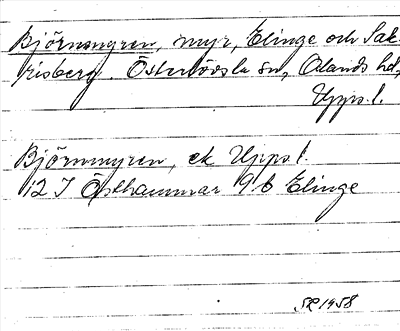 Björnmyren, myr, Elinge och Sak-
risberg. Österlövsta sn, Olands hd,
Upps. l.
Björnmyren, ek Upps l.
12 I Östhammar 9 b Elinge
1958